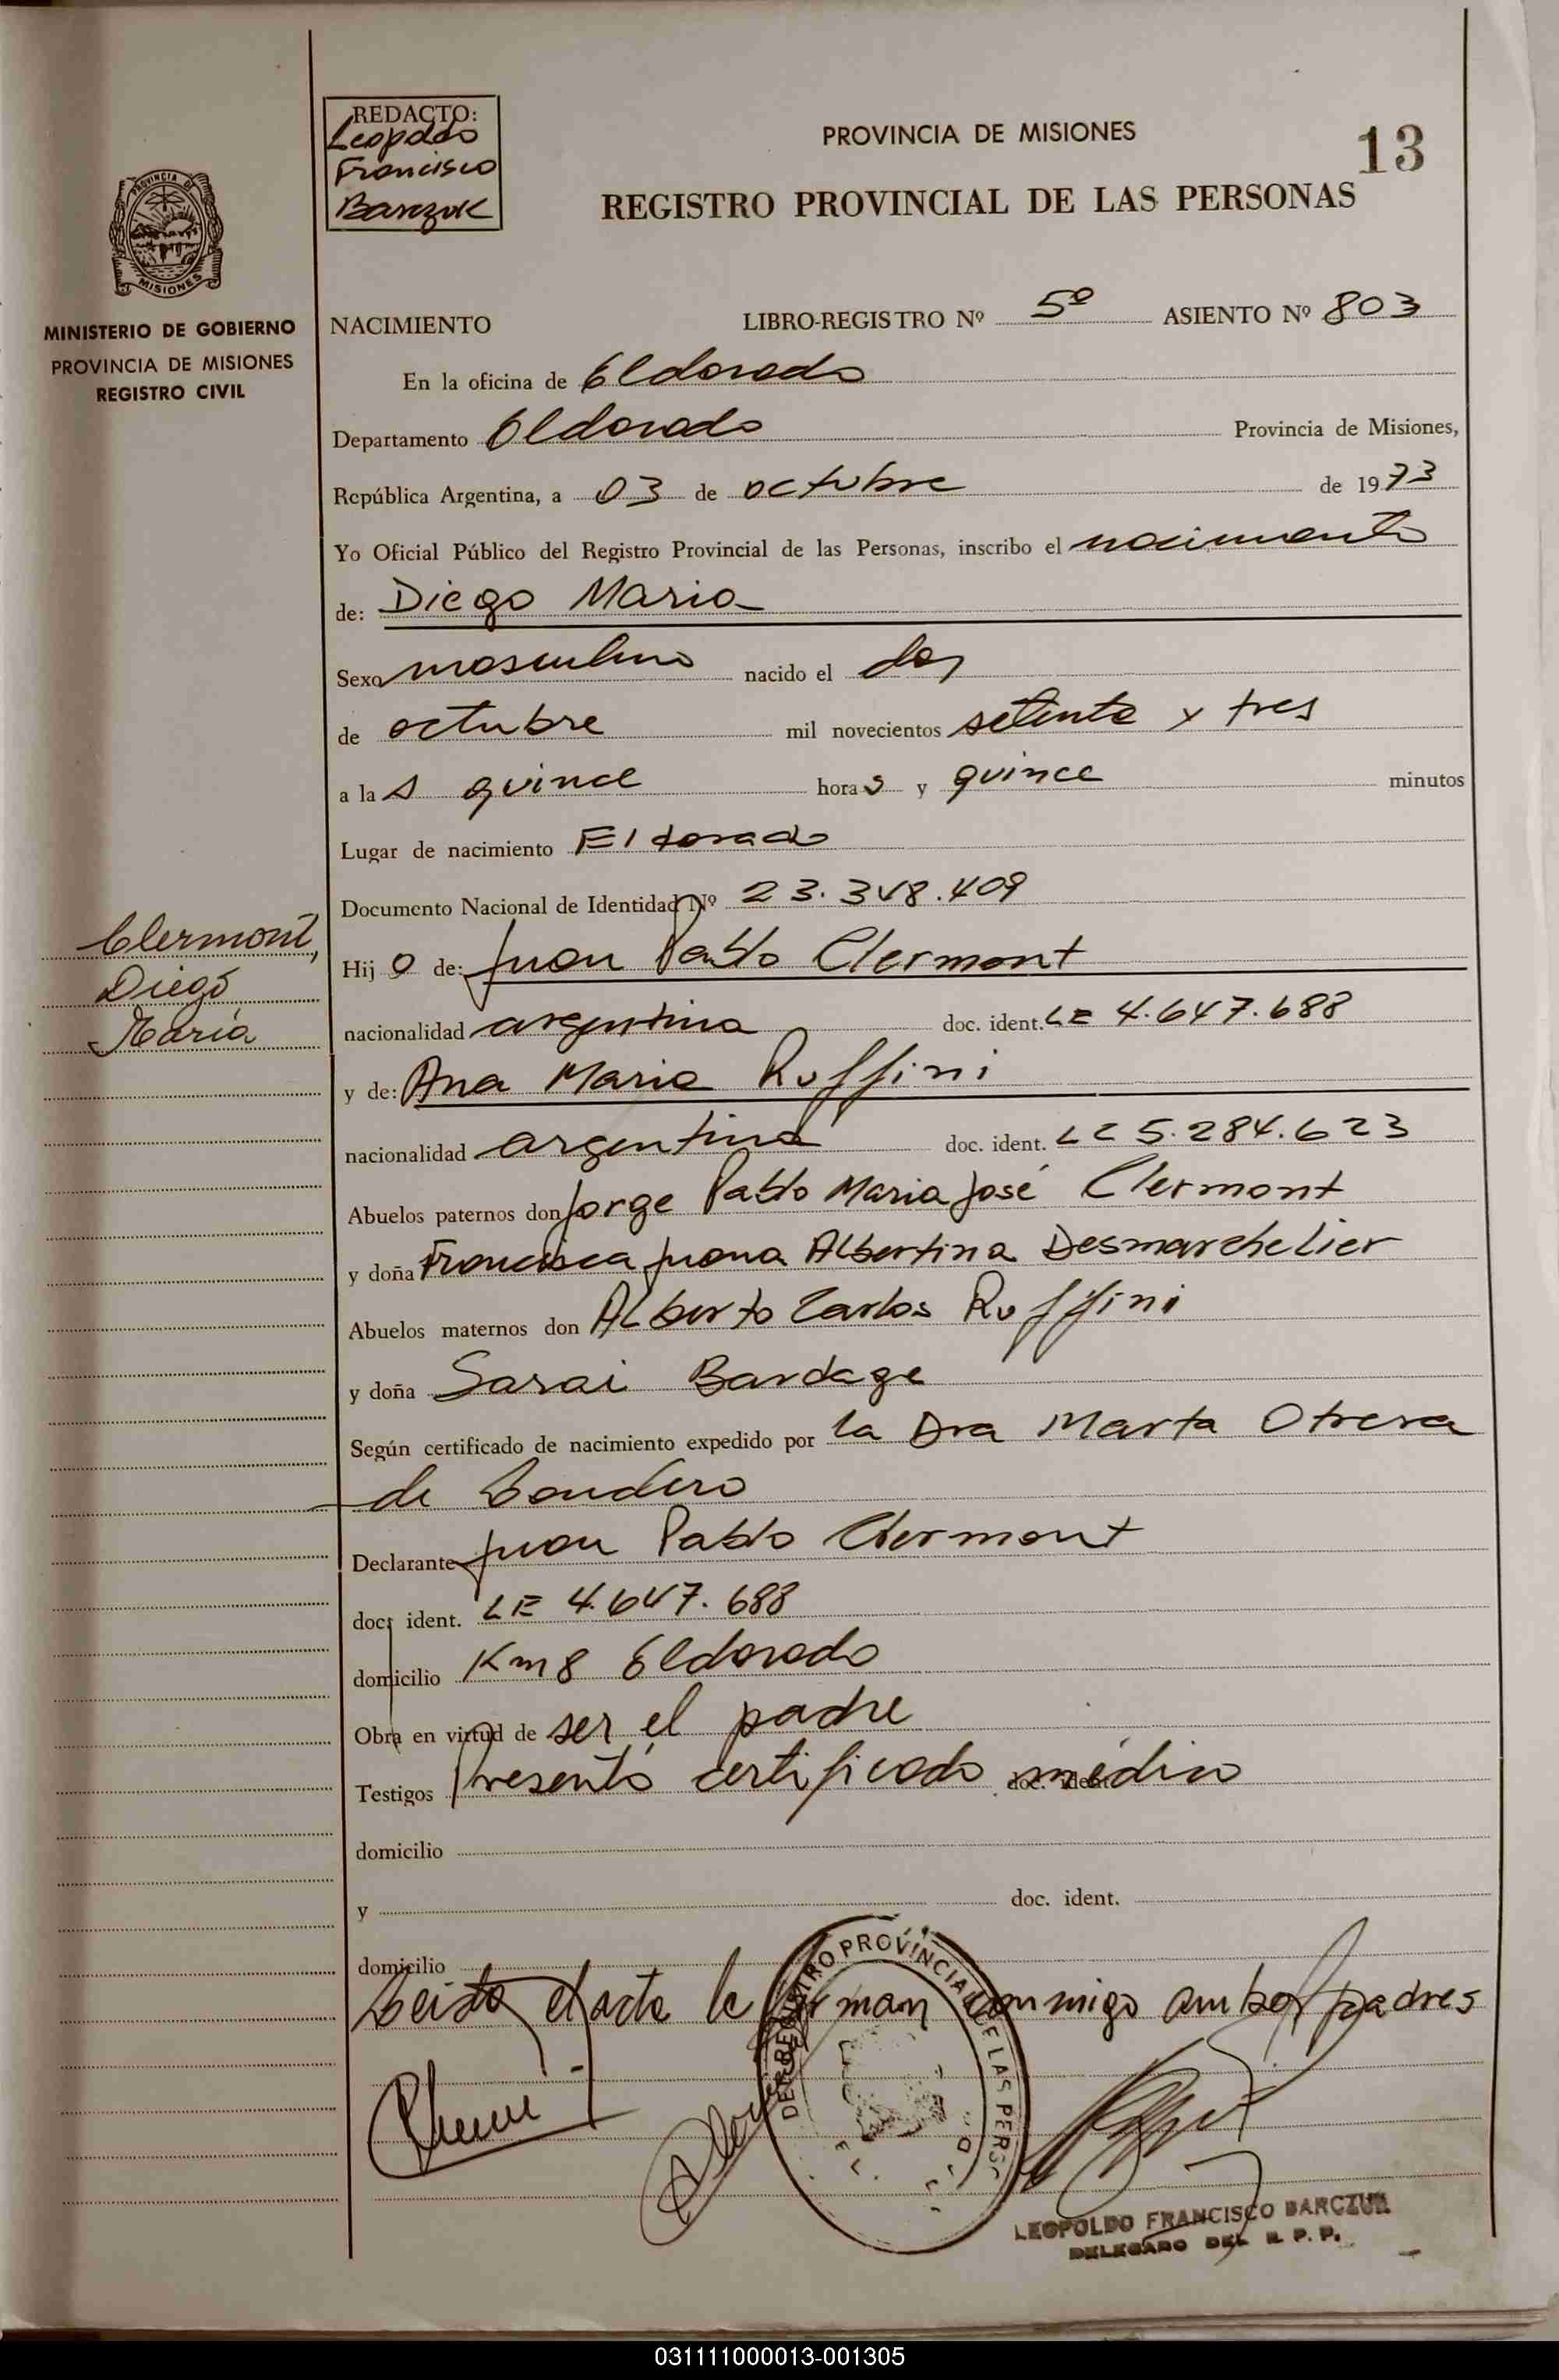 REDACTO:
Leopoldo
Francisco
Barczuk
PROVINCIA DE MISIONES
13
REGISTRO PROVINCIAL DE LAS PERSONAS
PROVINCIA DE
MISIONES
MINISTERIO DE GOBIERNO
PROVINCIA DE MISIONES
REGISTRO CIVIL
NACIMIENTO LIBRO-REGISTRO Nº 5º ASIENTO Nº 803
En la oficina de Eldorado
Departamento Eldorado Provincia de Misiones,
República Argentina, a 03 de octubre de 1973
Yo Oficial Público del Registro Provincial de las Personas, inscribo el nacimiento
de: Diego Maria
Sexo masculino nacido el dos
de octubre mil novecientos setenta y tres
a las quince horas y quince minutos
Lugar de nacimiento Eldorado
Documento Nacional de Identidad Nº 23.348.409
Clermont,
Diego
María
Hijo de: Juan Pablo Clermont
nacionalidad argentina doc. ident. LE 4.647.688
y de: Ana Maria Ruffini
nacionalidad argentina doc. ident. LC 5.284.623
Abuelos paternos don Jorge Pablo Maria José Clermont
y doña Francisca Juana Albertina Desmarchelier
Abuelos maternos don Alberto Carlos Ruffini
y doña Sarai Bardage
Según certificado de nacimiento expedido por la Dra Marta Otrera
de
Declarante Juan Pablo Clermont
doc. ident. LE 4.647.688
domicilio Km 8 Eldorado
Obra en virtud de ser el padre
Testigos Presentó certificado médico doc. ident.
domicilio
y doc. ident.
domicilio
Leida el acta la firman conmigo ambos padres
REGISTRO PROVINCIAL DE LAS PERS
LEOPOLDO FRANCISCO BARCZUK
DELEGADO DEL R. P. P.
031111000013-001305